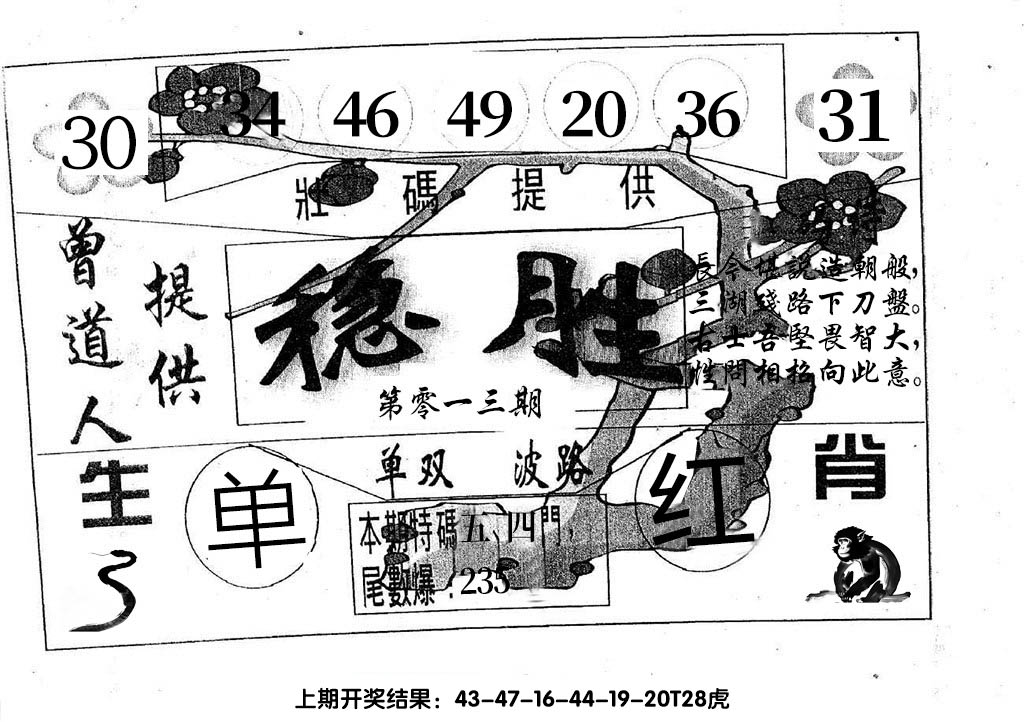 30 34 46 49 20 36 31
壯碼提供
特
曾道人
提供
稳胜
第零一三期
長今世說造朝般，
三湖殘路下刀盤。
右士吾堅畏智大，
性問相招向此意。
单双 波路
生
单
红
肖
本期特碼五、四門，
尾數爆：235
上期开奖结果：43-47-16-44-19-20T28虎